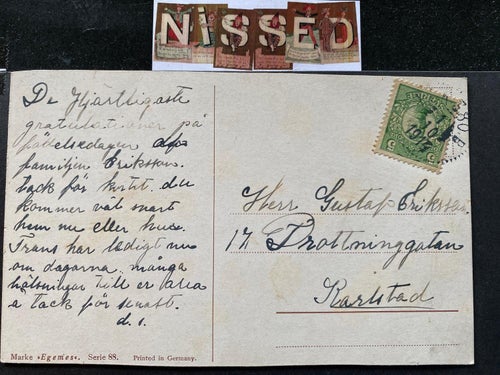 NiSSED
De Hjärtligaste
gratulationer på
födelsedagen
familjen Eriksson
tack för kortet. du
kommer väl snart
hem nu eller hur.
Frans har ledigt nu
om dagarna. många
hälsningar till er alla
å tack för senast.
d. s.
Herr Gustaf Eriksson
17 Drottninggatan
Karlstad
Marke »Egemes«. Serie 88. Printed in Germany.